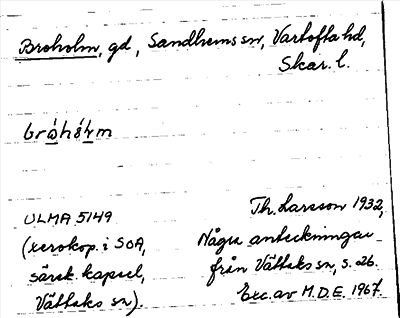 Broholm, gd, Sandhems sn, Vartofta hd,
Skar. l.
bròhólm
ULMA 5149
(xerokop. i SOA,
särsk. kapsel,
Vättaks sn).
Th. Larsson 1932,
Några anteckningar
från Vättaks sn, s. 26.
Exc. av M.D.E. 1967.